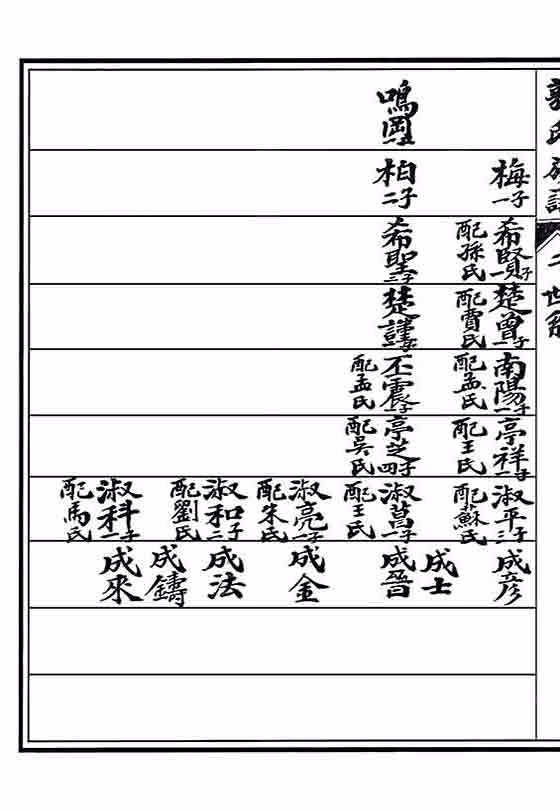 郭氏族譜
梅一子
希賢一子
配孫氏
楚曾一子
配賈氏
南陽一子
配孟氏
亭祥一子
配王氏
淑平三子
配蘇氏
成彥
成士
鳴岡
柏二子
希聖三子
楚謹
丕震一子
配孟氏
亭芝四子
配吳氏
淑菖一子
配王氏
成晉
淑亮一子
配朱氏
成金
淑和二子
配劉氏
成法
成鑄
淑科一子
配馬氏
成來